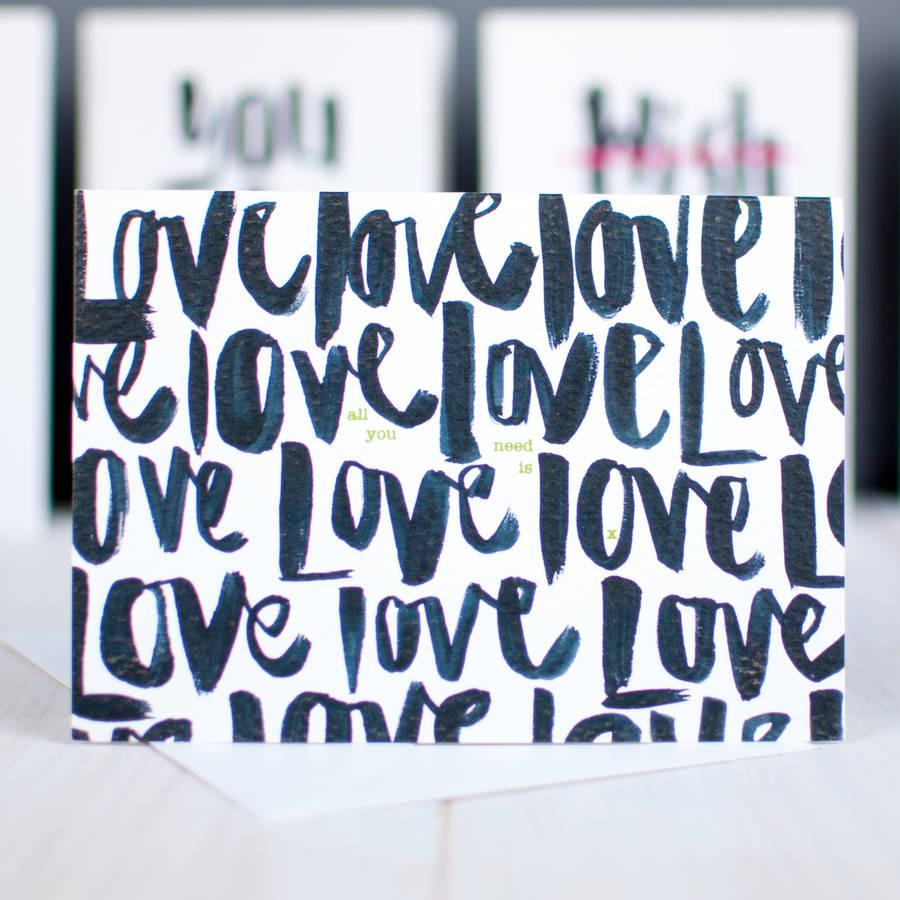 you
Wish
love love love l
ve love love Love
ove Love love Lo
all
you
need
is
x
Love love Love
ve love love